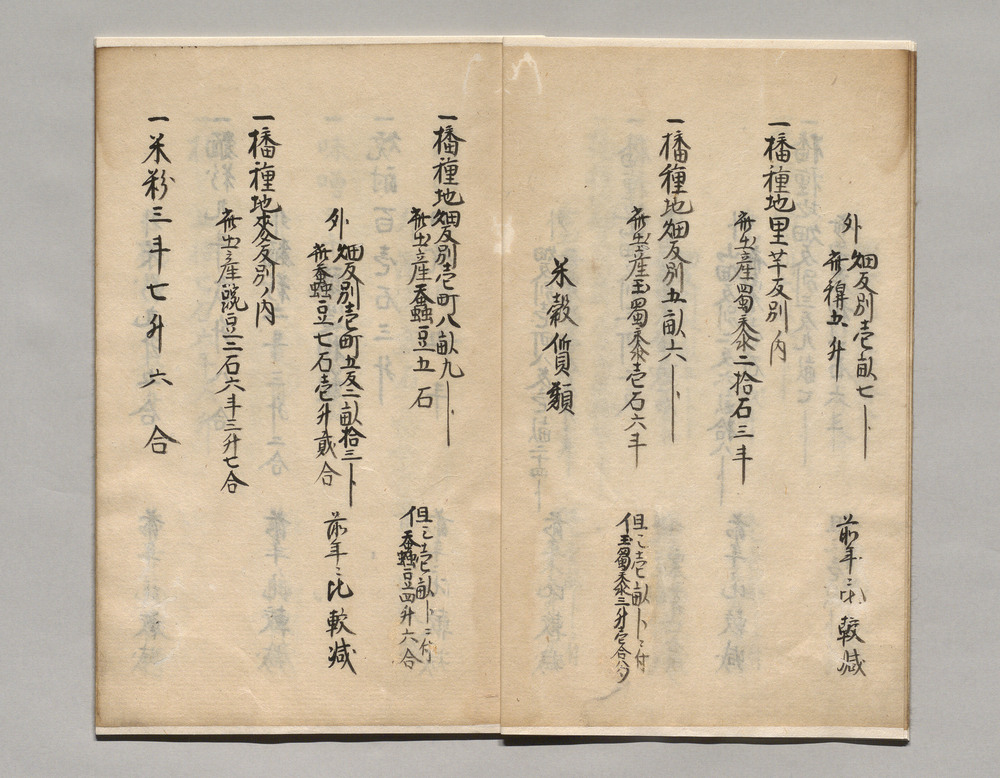 外 畑反別壱畝七ト
此稗五升
前年ニ比較減
一播種地里芋反別ノ内
此出産蜀黍二拾石三斗
一播種地畑反別五畝六ト
此出産玉蜀黍壱石六斗
但シ壱畝トニ付
玉蜀黍三升壱合
米穀質類
一播種地畑反別壱町八畝九ト
此出産蚕豆五石
但シ壱畝トニ付
蚕豆四升六合
外 畑反別壱町五反二畝拾三ト
此蚕豆七石壱升貳合
前年ニ比較減
一播種地麥反別ノ内
此出産豌豆三石六斗三升七合
一米粉三斗七升六合